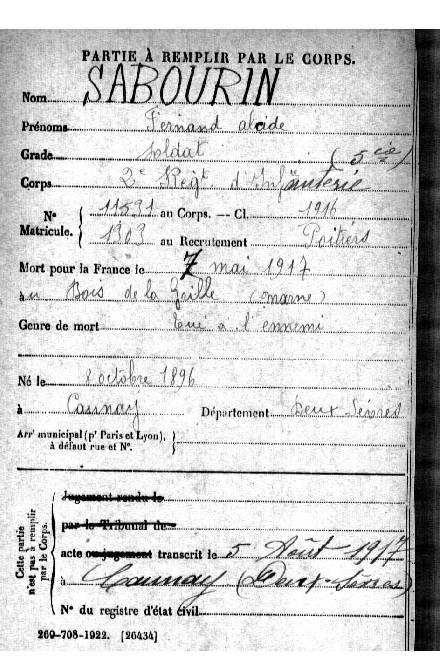 PARTIE À REMPLIR PAR LE CORPS.
Nom SABOURIN
Prénoms Fernand alcide
Grade soldat (5 cie)
Corps 2e Régt d'Infanterie
Nº Matricule. { 11591 au Corps. — Cl. 1916
1303 au Recrutement Poitiers
Mort pour la France le 7 mai 1917
au Bois de la Grille (Marne)
Genre de mort Tué à l'ennemi
Né le 8 octobre 1896
à Caunay Département Deux Sèvres
Arrt municipal (pr Paris et Lyon), }
à défaut rue et Nº.
Cette partie n'est pas à remplir par le Corps.
Jugement rendu le
par le Tribunal de
acte ou jugement transcrit le 5 Août 1917
à Caunay (Deux-Sèvres)
Nº du registre d'état civil
269-708-1922. [26434]